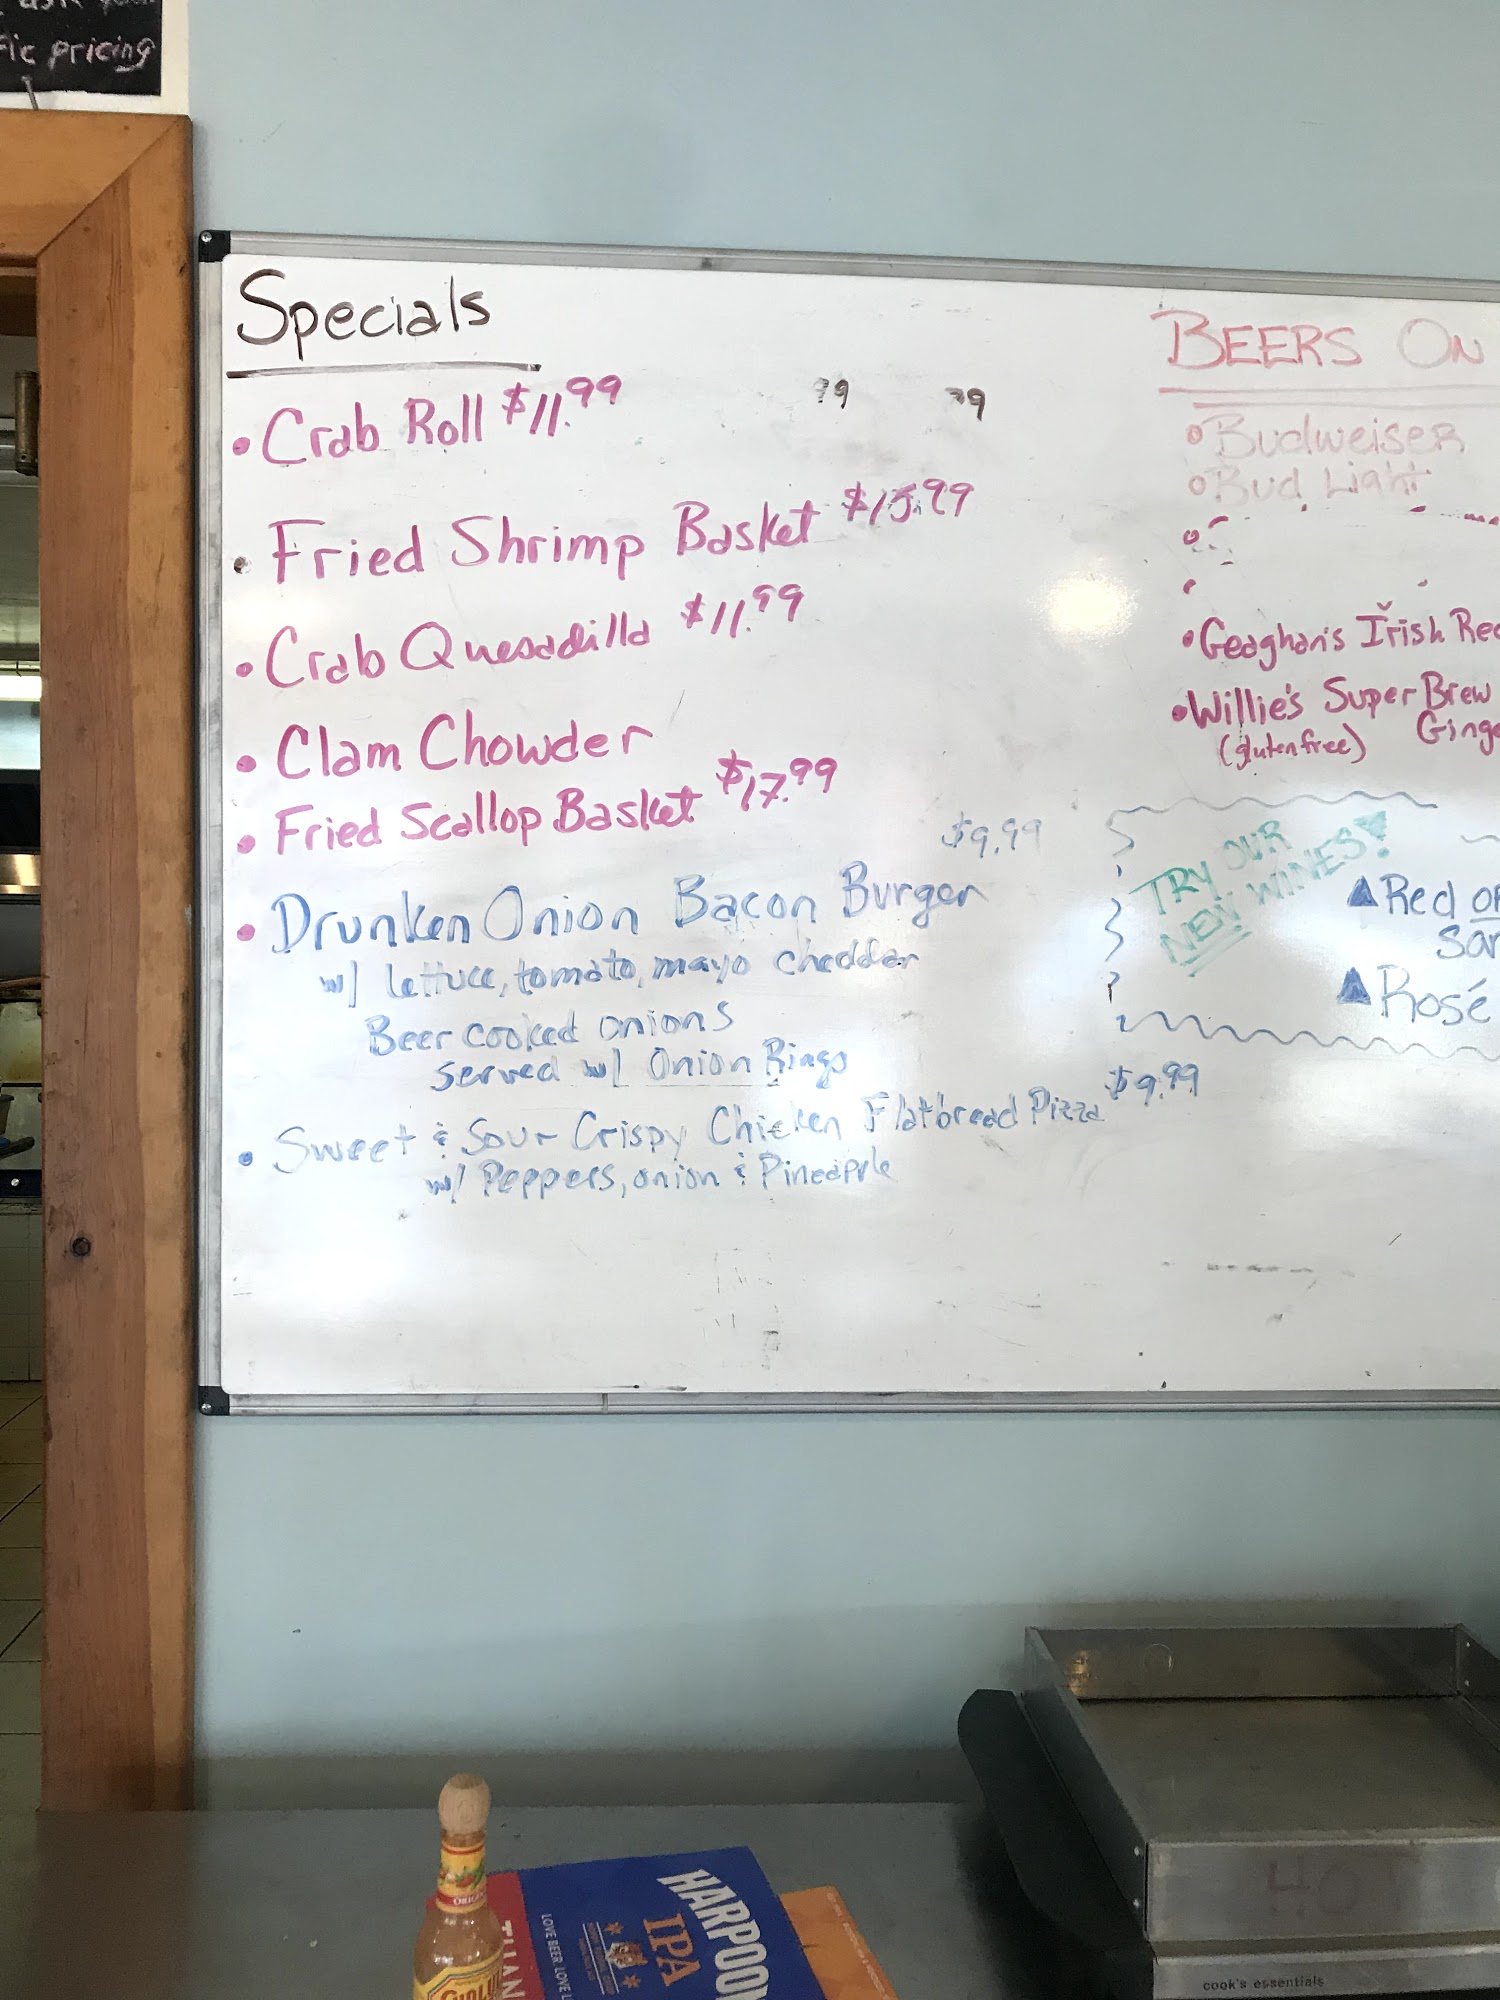 fic pricing
Specials
• Crab Roll $11.99
• Fried Shrimp Basket $15.99
• Crab Quesadilla $11.99
• Clam Chowder
• Fried Scallop Basket $17.99
• Drunken Onion Bacon Burger $9.99
w/ lettuce, tomato, mayo cheddar
Beer cooked onions
served w/ Onion Rings
• Sweet & Sour Crispy Chicken Flatbread Pizza $9.99
w/ Peppers, onion & Pineapple
BEERS ON
• Budweiser
• Bud Light
• Geaghan's Irish Red
• Willie's Super Brew
(gluten free) Ginge
TRY OUR
NEW WINES!
Red or
Rosé
HARPOON
IPA
LOVE BEER. LOVE L
HOT
cook's essentials